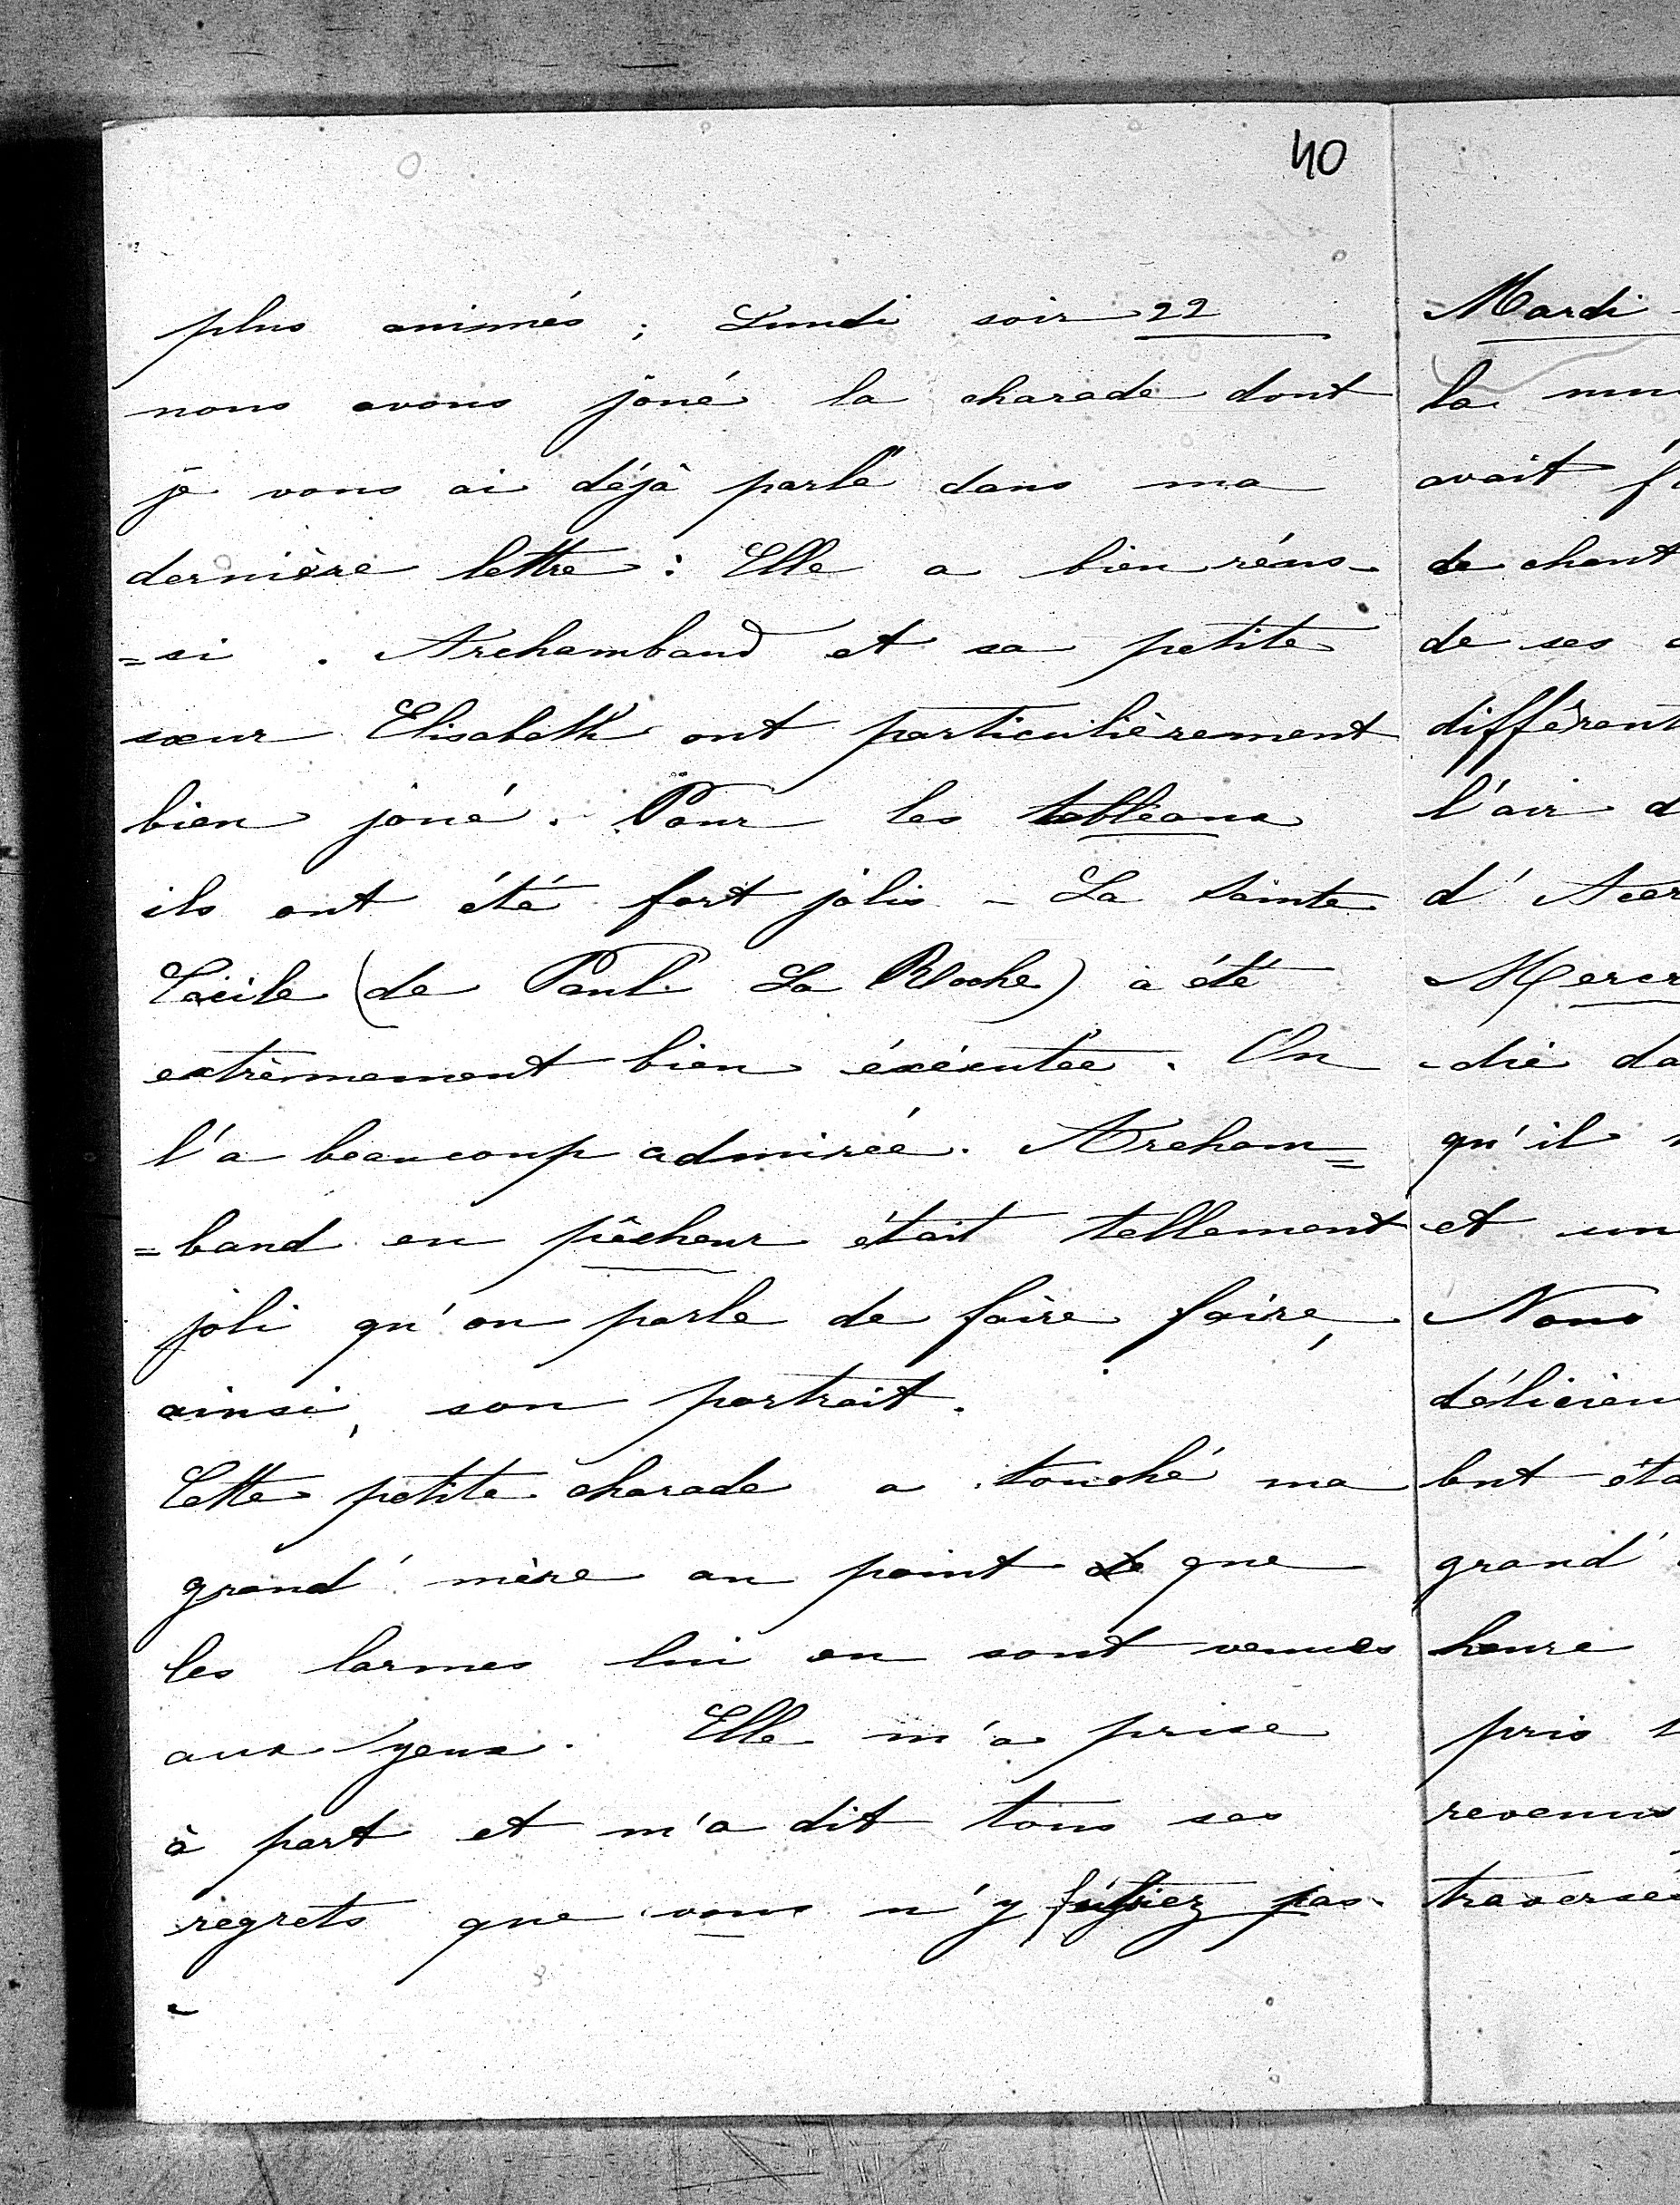 40
plus animés ; Lundi soir 22
nous avons joué la charade dont
je vous ai déjà parlé dans ma
dernière lettre : Elle a bien réus-
=si . Archambaud et sa petite
sœur Elisabeth ont particulièrement
bien joué . Pour les tableaux
ils ont été fort jolis - La Sainte
Cécile (de Paul La Roche) a été
extrêmement bien éxécutée . On
l'a beaucoup admirée . Archam=
=baud en pêcheur était tellement
joli qu'on parle de faire faire,
ainsi, son portrait .
Cette petite charade a touché ma
grand'mère au point de que
les larmes lui en sont venues
aux yeux . Elle m'a prise
à part et m'a dit tous ses
regrets que vous n'y fussiez pas -
-
Mardi
la
avait
de chant
de ses
différent
l'air d
d'
Mercr
-die da
qu'il
et un
Nous
délicieu
but éta
grand'
heure
pris
revenus
traversé